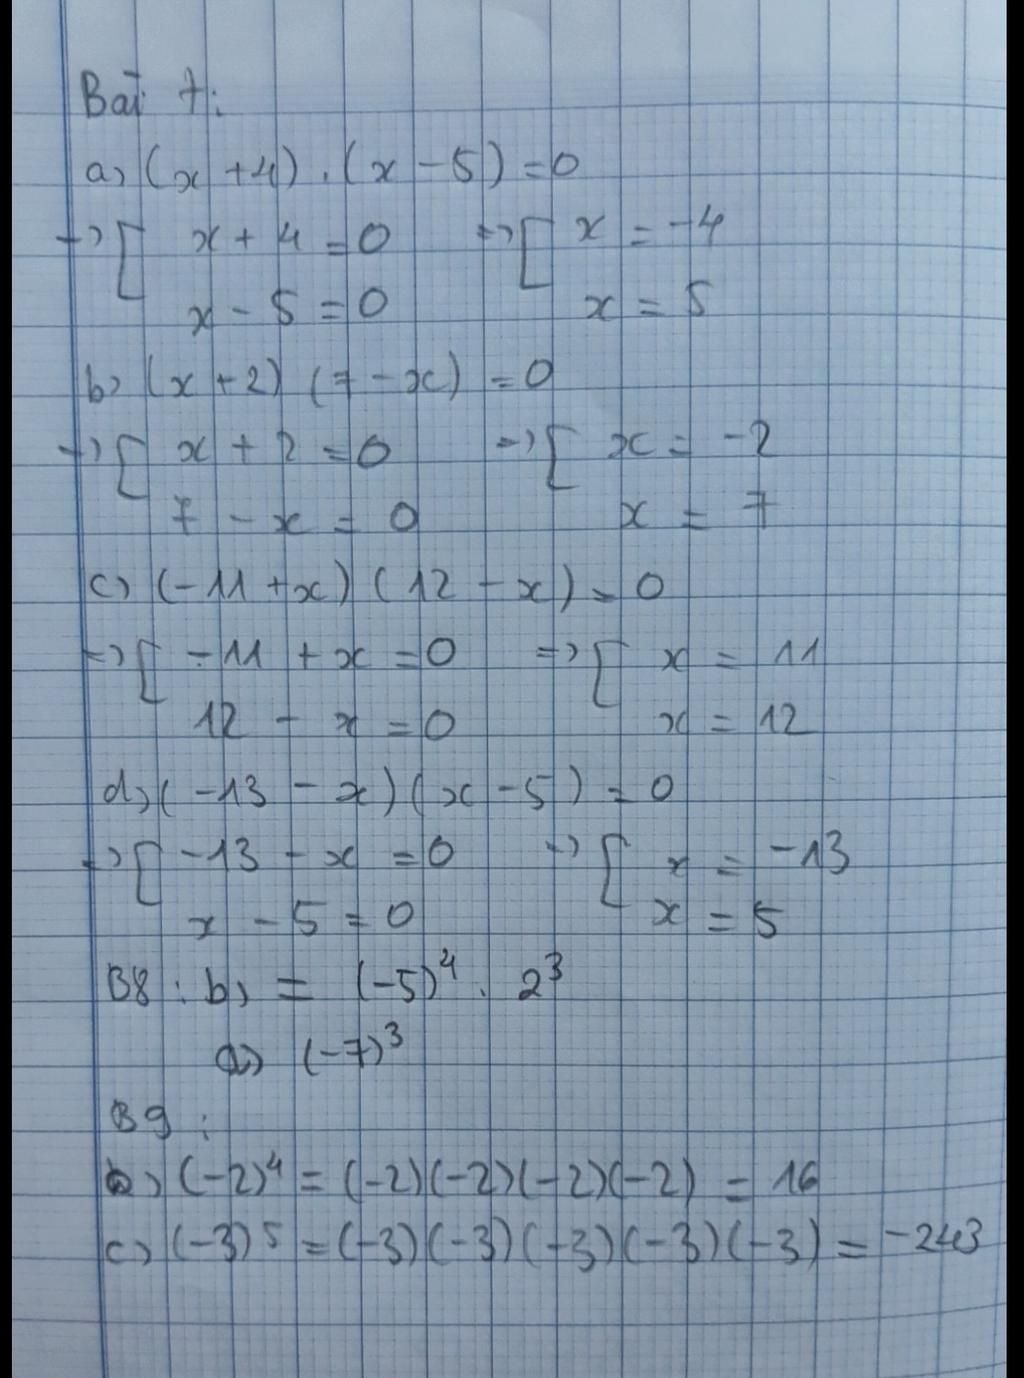 Bài 7:
a) (x + 4) . (x - 5) = 0
=> [ x + 4 = 0 => [ x = -4
x - 5 = 0 x = 5
b) (x + 2) (7 - x) = 0
=> [ x + 2 = 0 => [ x = -2
7 - x = 0 x = 7
c) (-11 + x) (12 - x) = 0
=> [ -11 + x = 0 => [ x = 11
12 - x = 0 x = 12
d) (-13 - x) (x - 5) = 0
=> [ -13 - x = 0 => [ x = -13
x - 5 = 0 x = 5
B8 : b) = (-5)⁴ . 2³
a) (-7)³
B9 :
b) (-2)⁴ = (-2)(-2)(-2)(-2) = 16
c) (-3)⁵ = (-3)(-3)(-3)(-3)(-3) = -243